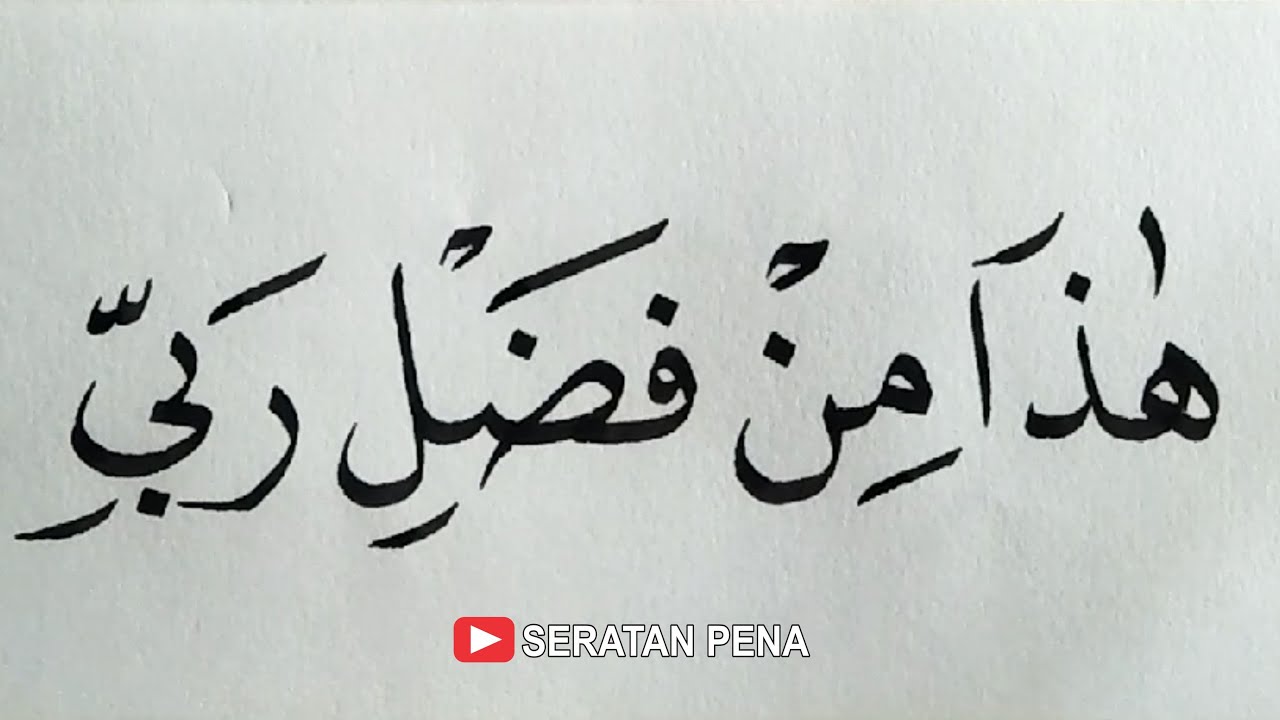 هٰذَا مِنْ فَضْلِ رَبِّيِ
SERATAN PENA